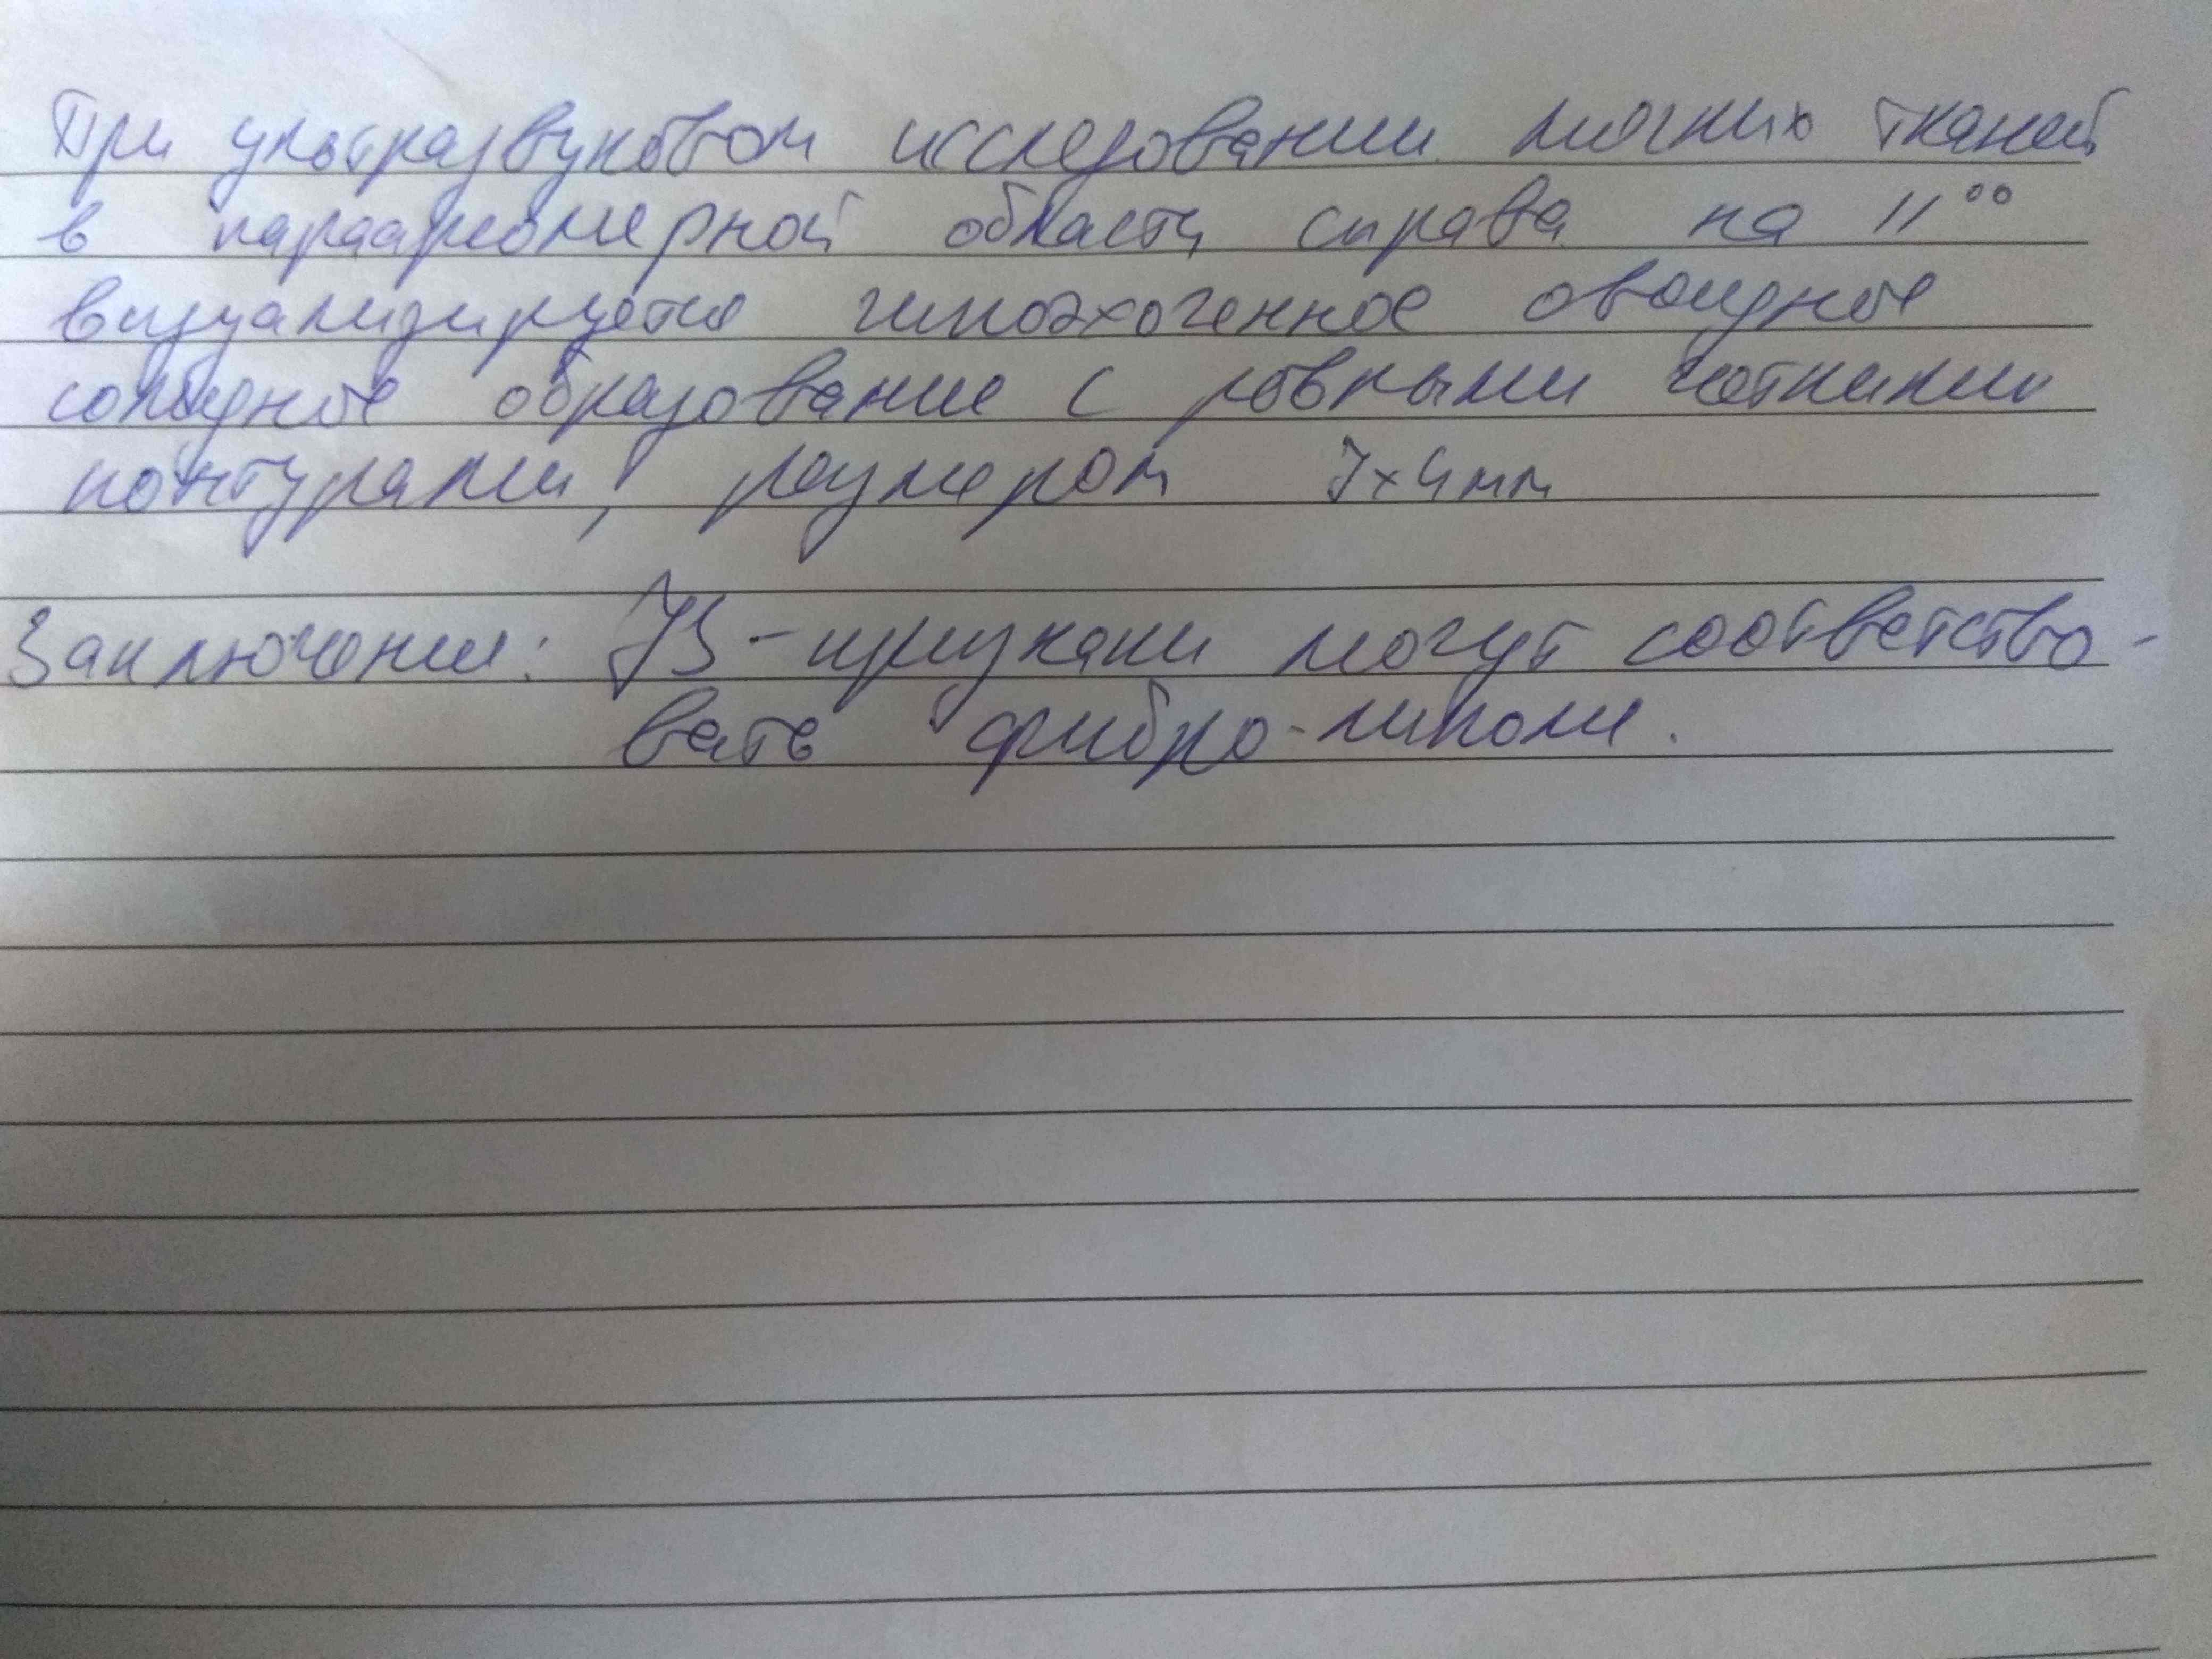 При ультразвуковом исследовании мягких тканей
в параареолярной области справа на 11°°
визуализируется гипоэхогенное овоидное
солидное образование с ровными четкими
контурами, размером 7х4мм
Заключение: УЗ-признаки могут соответство-
вать фибро-липоме.